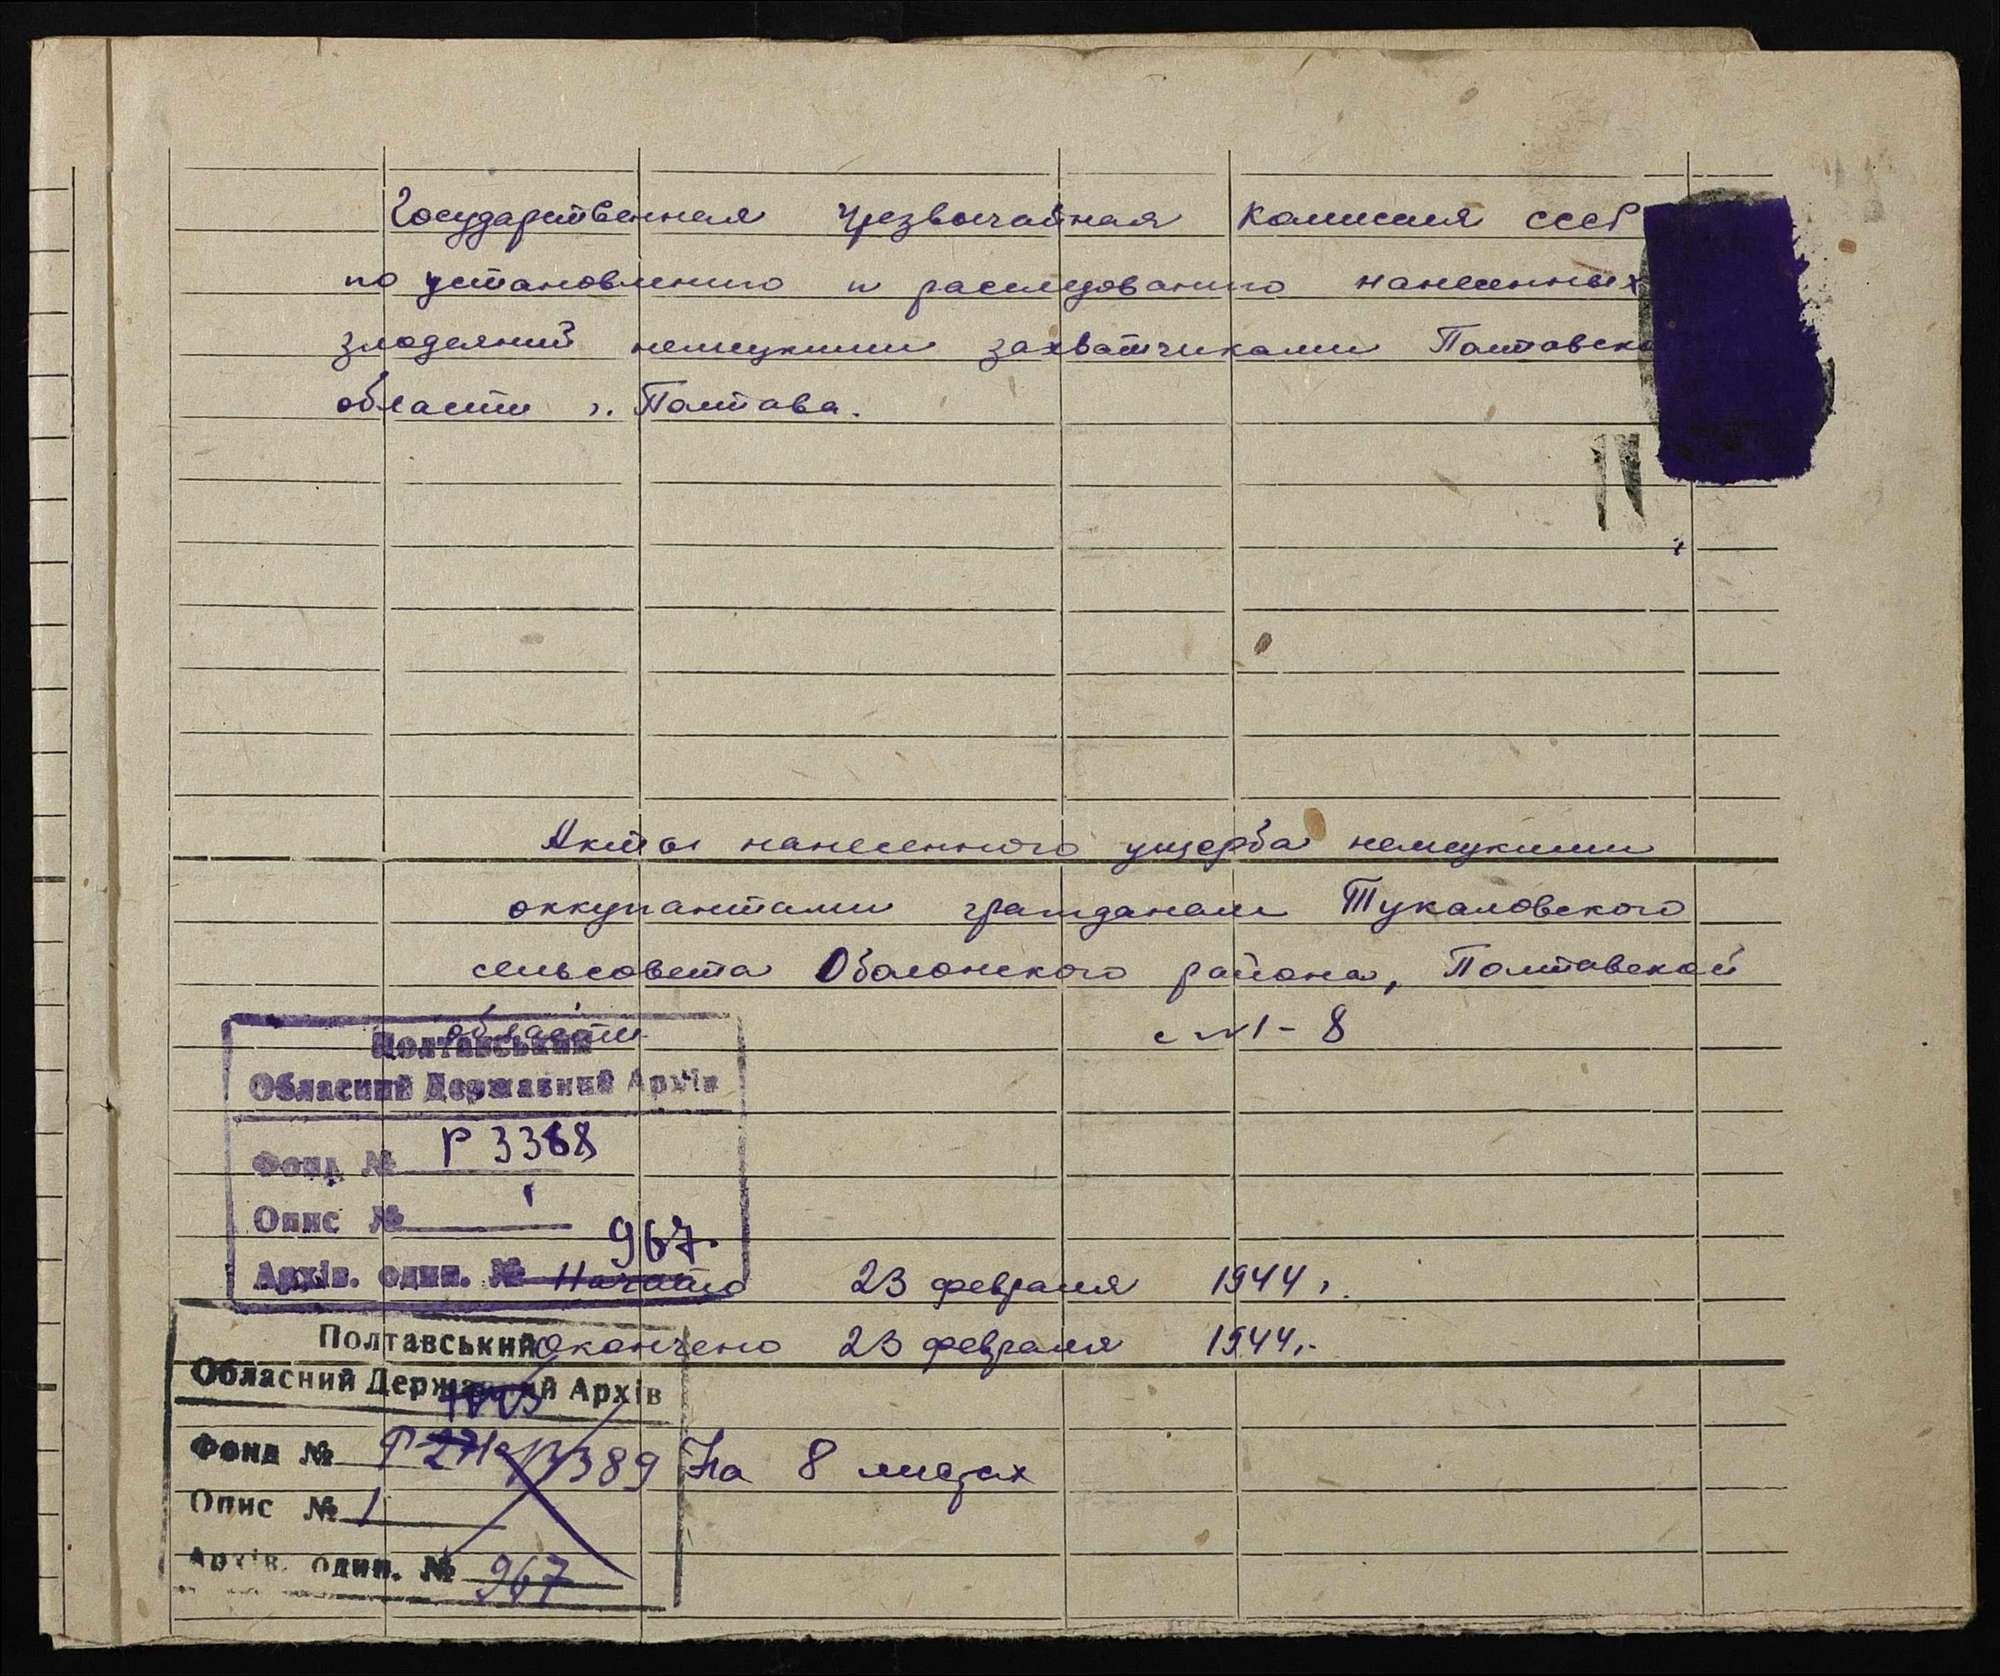 Государственная Чрезвычайная Комиссия СССР
по установлению и расследованию нанесенных
злодеяний немецкими захватчиками Полтавско
области г. Полтава.
Акты нанесенного ущерба немецкими
оккупантами гражданам Тукаловского
сельсовета Оболонского района, Полтавской
области с №1-8
Полтавський
Обласний Державний Архів
Фонд № Р 3388
Опис № 1
Архів. один. № 967.
Начато 23 февраля 1944 г.
Окончено 23 февраля 1944 г.
Полтавський
Обласний Державний Архів
Фонд № Р 3389
На 8 листах
Опис № 1
Архів. один. № 967